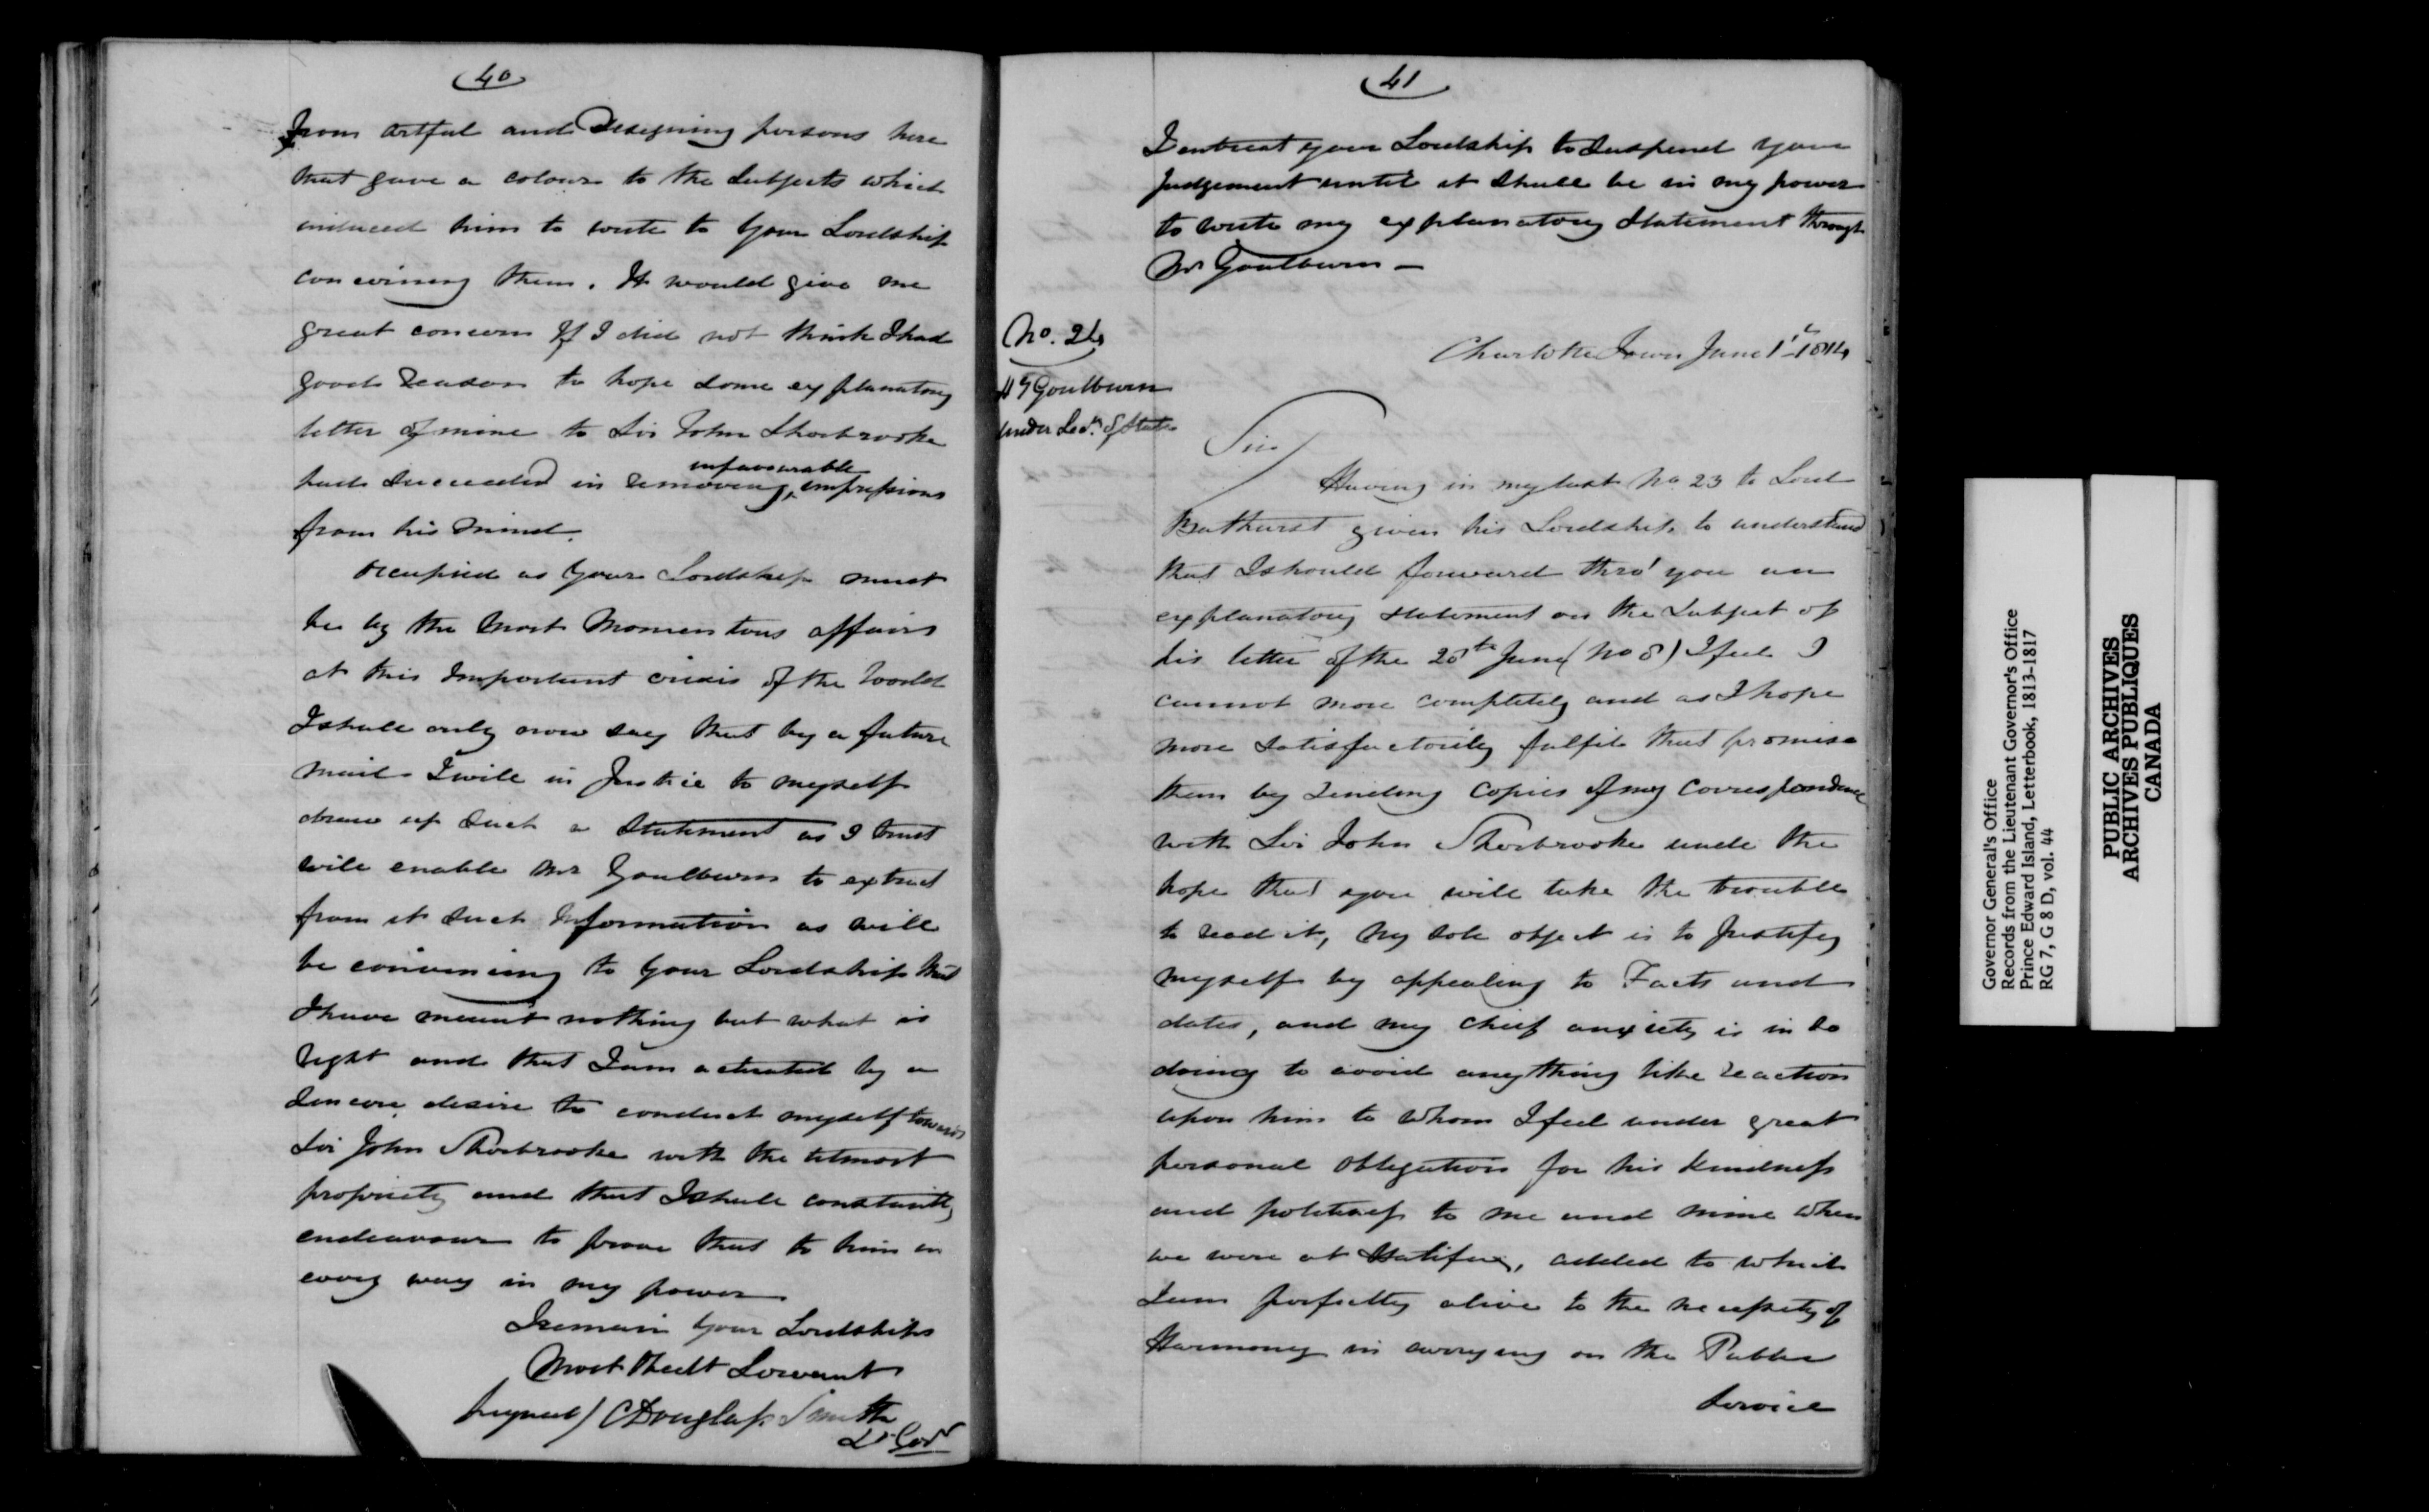 40
from artful and Designing persons here
that gave a colour to the Subjects which
induced him to write to Your Lordship
concerning them. It would give me
great concern If I did not think I had
good Reason to hope some explanatory
letter of mine to Sir John Sherbrooke
had succeeded in removing unfavourable impressions
from his mind.
Occupied as Your Lordship must
be by the most Momentous affairs
at this Important crisis of the World
I shall only now say that by a future
mail I will in Justice to myself
draw up such a Statement as I trust
will enable Mr Goulburn to extract
from it such Information as will
be convincing to Your Lordship that
I have meant nothing but what is
Right and that I am actuated by a
Sincere desire to conduct myself towards
Sir John Sherbrooke with the utmost
propriety and that I shall constantly
endeavour to prove that to him in
every way in my power
I remain Your Lordships
Most Obedt Servant
signed / C Douglass Smith
Lt Govr
41
I entreat your Lordship to Suspend your
Judgement until it shall be in my power
to write my explanatory Statement through
Mr Goulburn —
No. 24
H Goulburn
Under Secy. of State
Charlotte Town June 1st 1814
Sir
Having in my last No. 23 to Lord
Bathurst given his Lordship to understand
that I should forward thro' you an
explanatory statement on the Subject of
his letter of the 28th June (No 8) I feel I
cannot more completely and as I hope
more Satisfactorily fulfil that promise
than by Sending Copies of my Correspondence
with Sir John Sherbrooke unde the
hope that you will take the trouble
to read it, My sole object is to Justify
myself by appealing to Facts and
dates, and my chief anxiety is in so
doing to avoid anything like reaction
upon him to whom I feel under great
personal obligation for his Kindness
and politeness to me and mine when
we were at Halifax, added to which
I am perfectly alive to the necessity of
Harmony in carrying on the Public
Service
Governor General's Office
Records from the Lieutenant Governor's Office
Prince Edward Island, Letterbook, 1813-1817
RG 7, G 8 D, vol. 44
PUBLIC ARCHIVES
ARCHIVES PUBLIQUES
CANADA